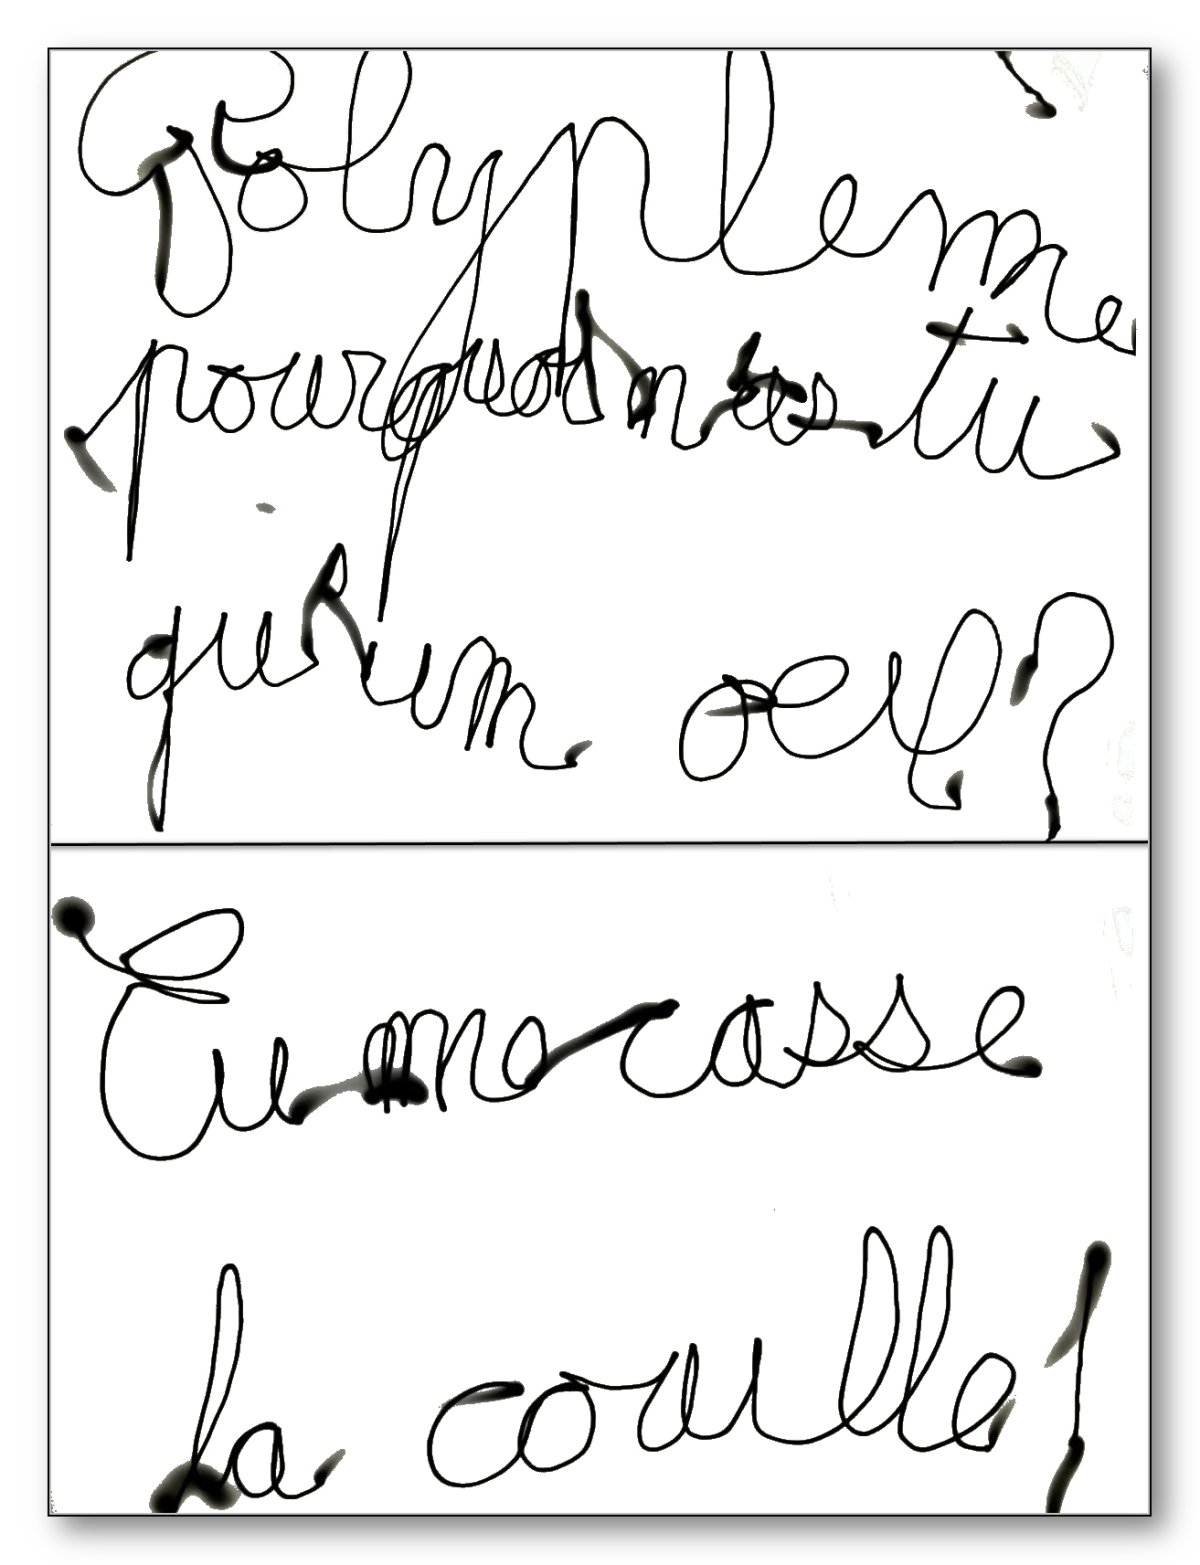 Polypleme
pourquoi n'as tu
qu'un oeil?
Tu me casse
la couille!